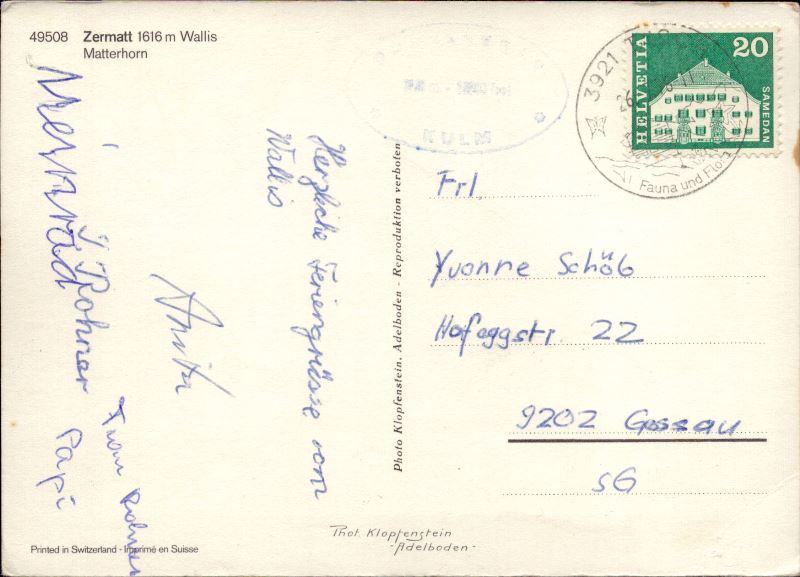 49508 Zermatt 1616 m Wallis
Matterhorn
Herzliche Feriengrüsse vom
Wallis
Meinrad
J. Rohner
Anita
Frau Rohner
Papi
Photo Klopfenstein, Adelboden - Reproduktion verboten
KULM
3921
Fauna und Flo
HELVETIA
20
SAMEDAN
Frl.
Yvonne Schöb
Hofeggstr. 22
9202 Gossau
SG
Phot. Klopfenstein
- Adelboden -
Printed in Switzerland - Imprimé en Suisse